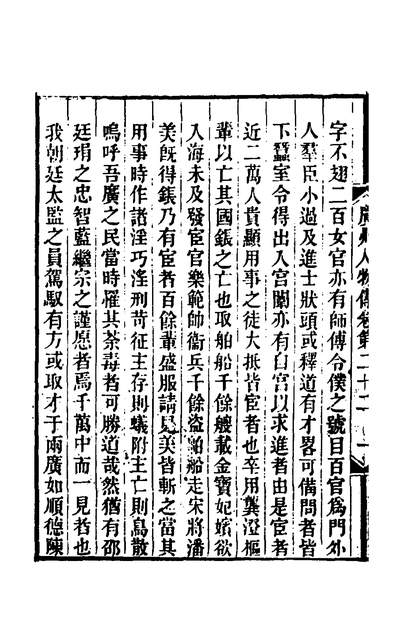 廣州人物傳卷第二十二
字不翅二百女官亦有師傅令僕之號目百官爲門外
人羣臣小過及進士狀頭或釋道有才畧可備問者皆
下蠶室令得出入宮闈亦有自宮以求進者由是宦者
近二萬人貴顯用事之徒大抵皆宦者也卒用龔澄樞
輩以亡其國鋹之亡也取舶船千餘艘載金寶妃嬪欲
入海未及發宦官樂範帥衞兵千餘盜舶船走宋將潘
美旣得鋹乃有宦者百餘輩盛服請見美皆斬之當其
用事時作諸淫巧淫刑苛征主存則蟻附主亡則鳥散
嗚呼吾廣之民當時罹其荼毒者可勝道哉然猶有邵
廷琄之忠智藍繼宗之謹愿者焉千萬中而一見者也
我朝廷太監之員駕馭有方或取才于兩廣如順德陳